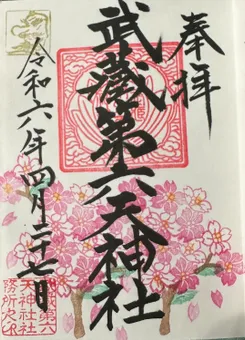 奉拝
武蔵第六天神社
令和六年四月二十七日
天神社社
務所之印